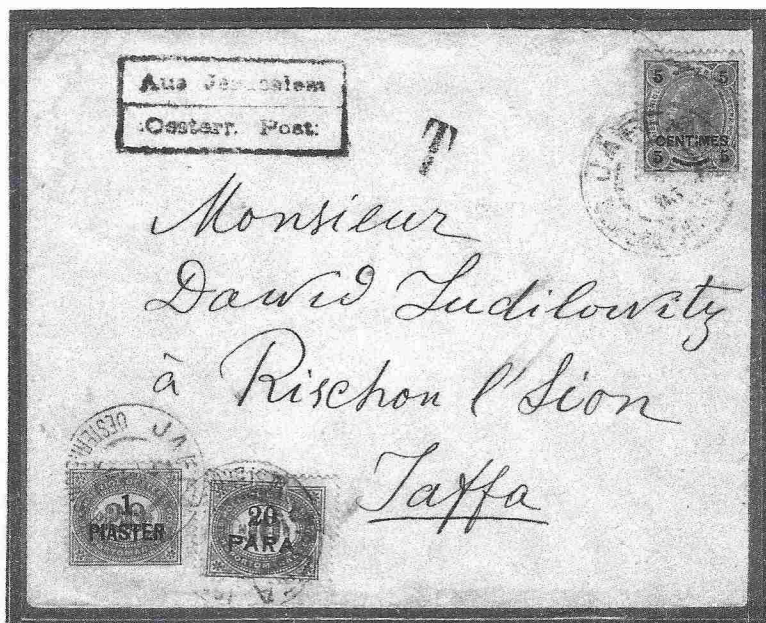 Aus Jerusalem
Oesterr. Post.
T
5 5
CENTIMES
5 5
Monsieur
Dawid Judilowitz
à Rischon l'Sion
Jaffa
JAFFA
1
PIASTER
20
PARA